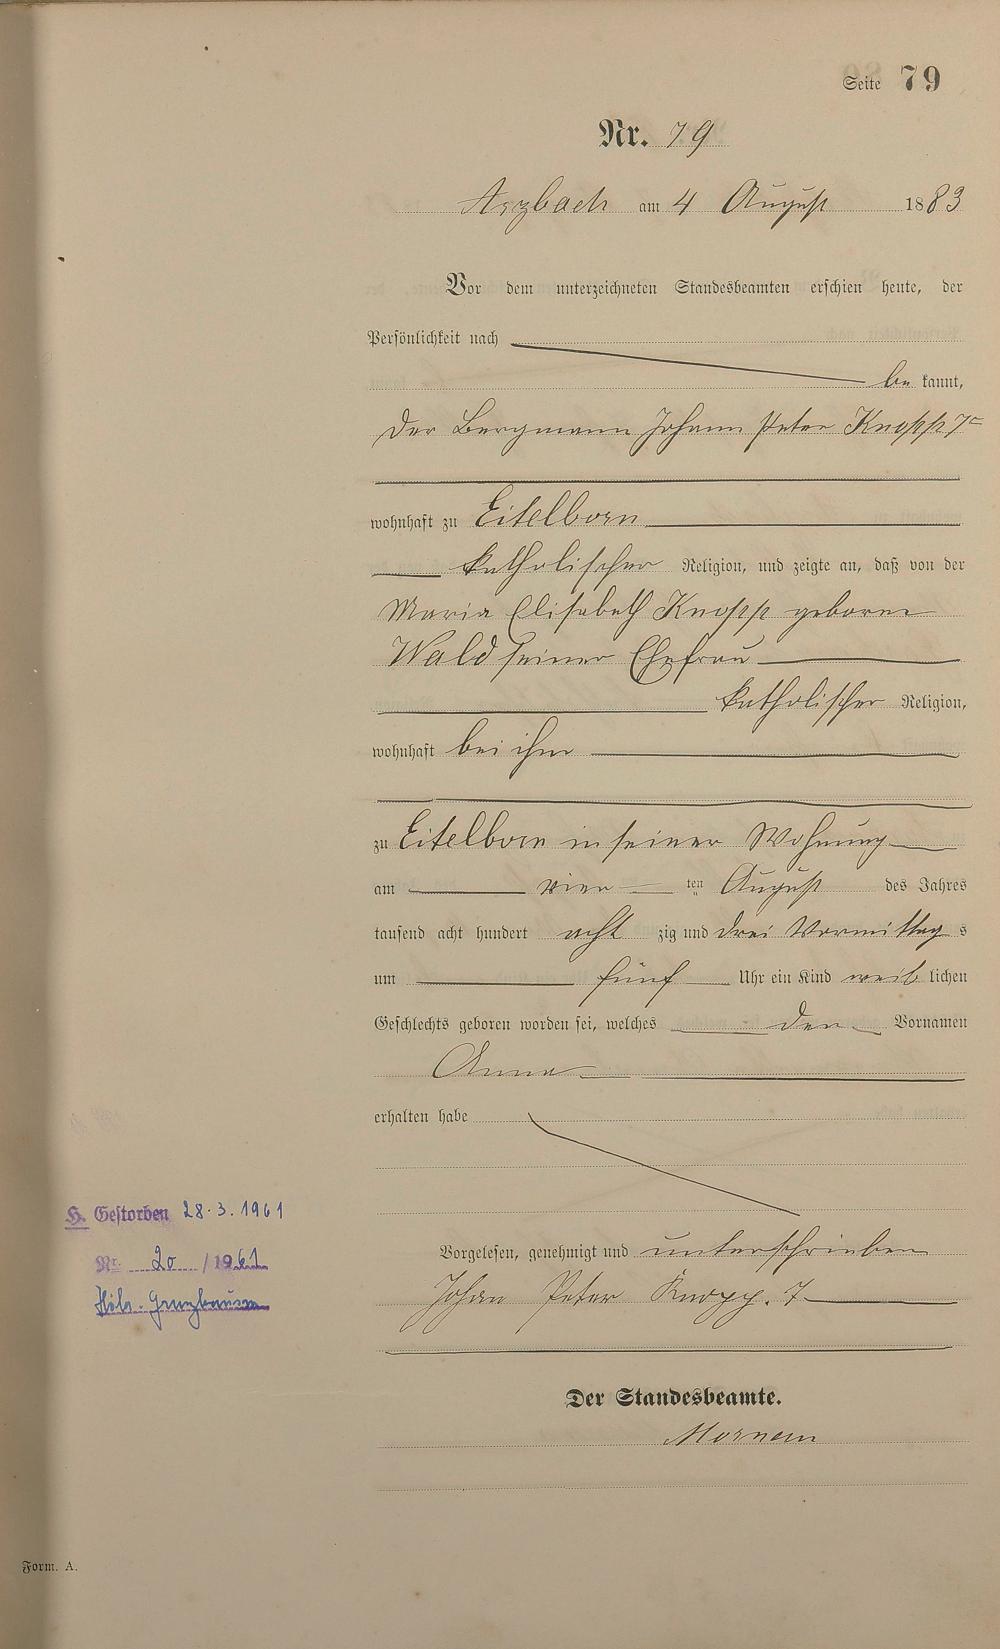 Seite 79
Nr. 79
Arzbach am 4 August 1883
Vor dem unterzeichneten Standesbeamten erschien heute, der
Persönlichkeit nach
be kannt,
der Bergmann Johann Peter Knopp 7r
wohnhaft zu Eitelborn
katholischer Religion, und zeigte an, daß von der
Maria Elisabeth Knopp geborne
Wald seiner Ehefrau
katholischer Religion,
wohnhaft bei ihm
zu Eitelborn in seiner Wohnung
am vier ten August des Jahres
tausend acht hundert acht zig und drei Vormittag s
um fünf Uhr ein Kind weib lichen
Geschlechts geboren worden sei, welches den Vornamen
Anna
erhalten habe
H. Gestorben 28.3.1961
Nr. 20 /1961
Vorgelesen, genehmigt und unterschrieben
Johan Peter Knopp. 7
Der Standesbeamte.
Form. A.